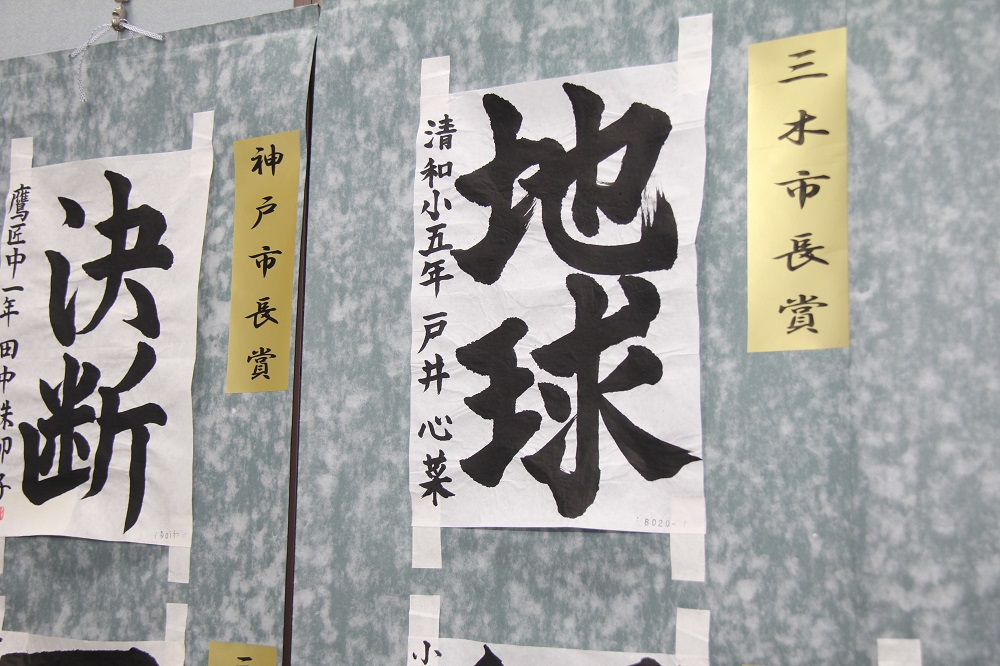 三木市長賞
地球
清和小五年 戸井心菜
神戸市長賞
決断
鷹匠中一年 田中朱卯子
小